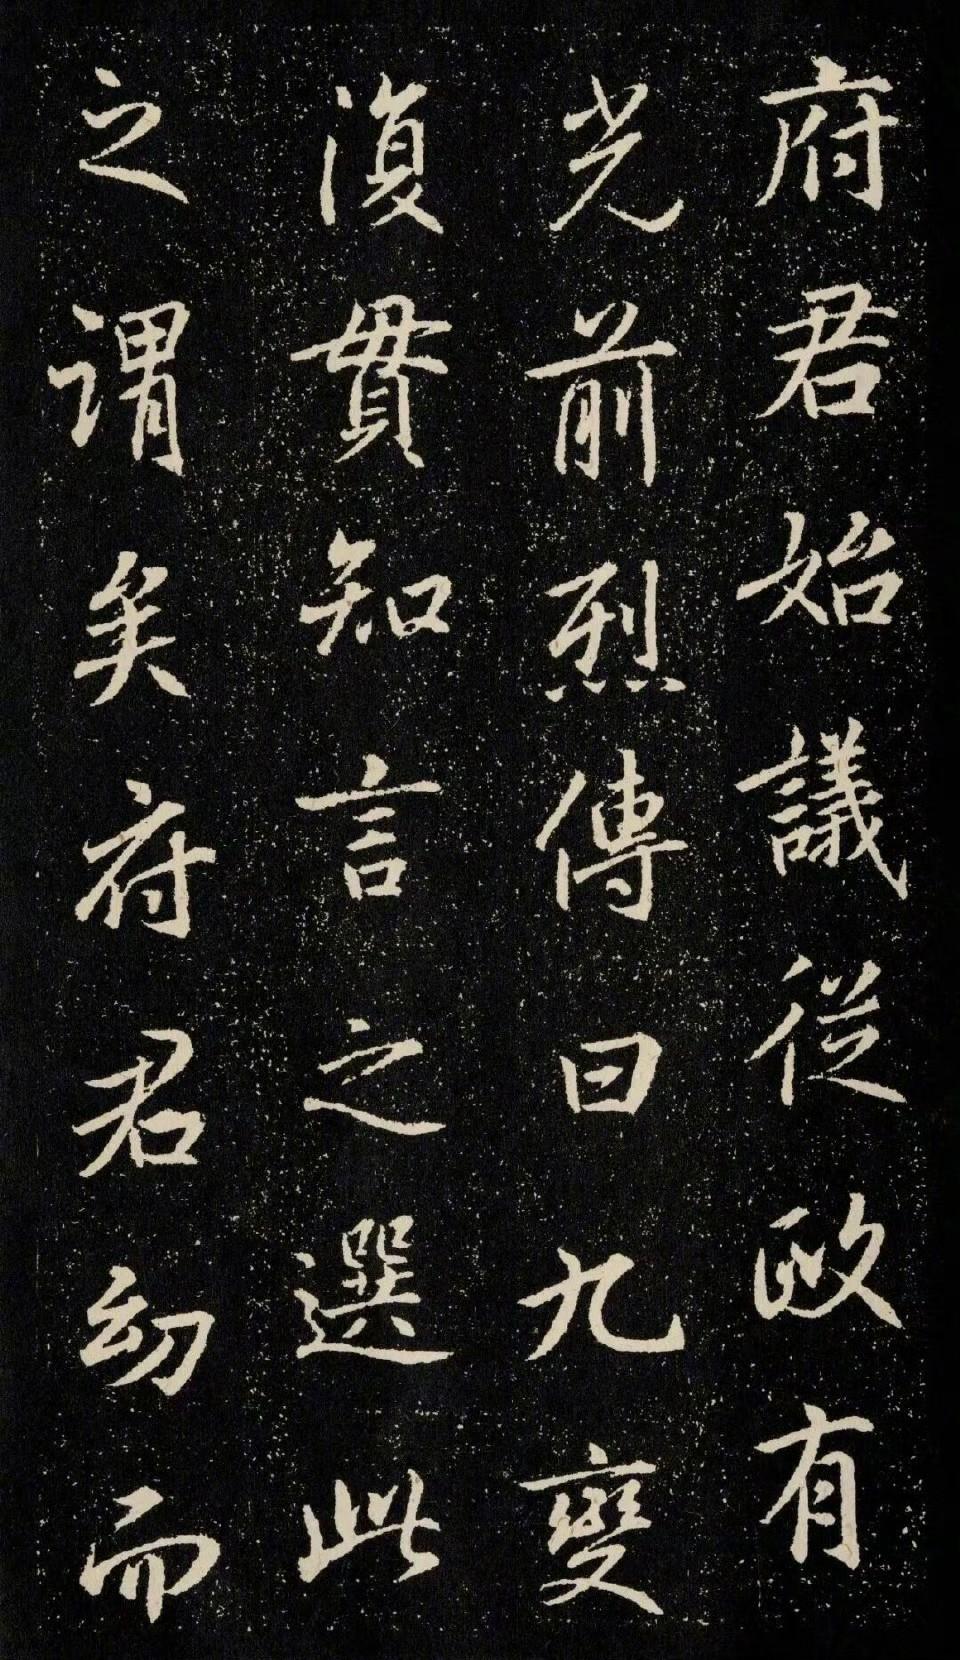 府君始議從政有
光前烈傳曰九變
復貫知言之選此
之謂矣府君幼而